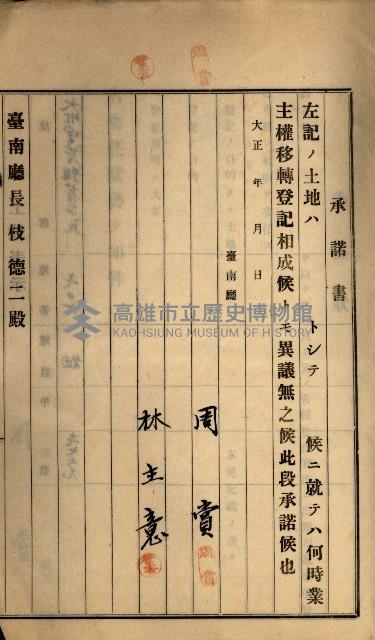 承諾書
左記ノ土地ハ　トシテ　候ニ就テハ何時業
主權移轉登記相成候トモ異議無之候此段承諾候也
大正　年　月　日
臺南廳
周賞
林主意
臺南廳長枝德二殿
高雄市立歷史博物館
KAOHSIUNG MUSEUM OF HISTORY